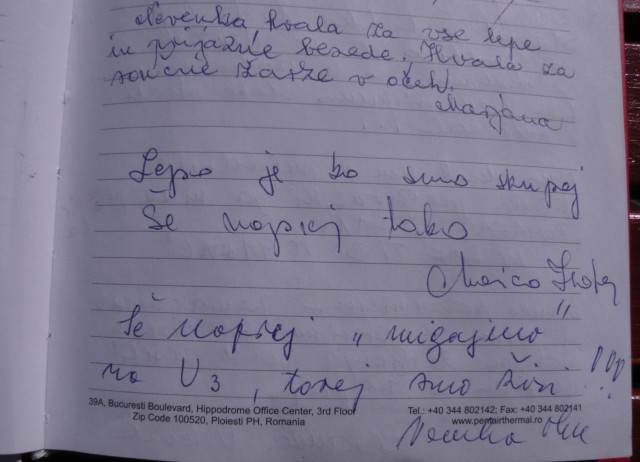 Nevenka, hvala za vse lepe
in prijazne besede. Hvala za
sončne žarke v očeh.
Marjana
Lepo je ko smo skupej
še naprej tako
Marica
še naprej „migajmo"
na U3, torej smo živi !!!
39A, Bucuresti Boulevard, Hippodrome Office Center, 3rd Floor
Zip Code 100520, Ploiesti PH, Romania
Tel.: +40 344 802142; Fax: +40 344 802141
www.pentairthermal.ro